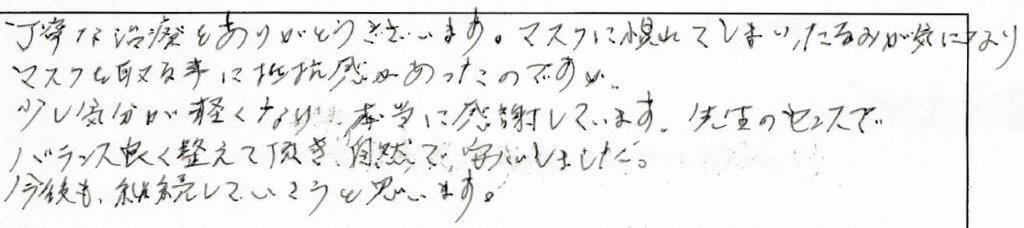 丁寧な治療をありがとうございます。マスクに慣れてしまい、たるみが気になり
マスクを取る事に抵抗感があったのですが、
少し気分が軽くなり、本当に感謝しています。先生のセンスで
バランス良く整えて頂き、自然で、安心しました。
今後も、継続していこうと思います。